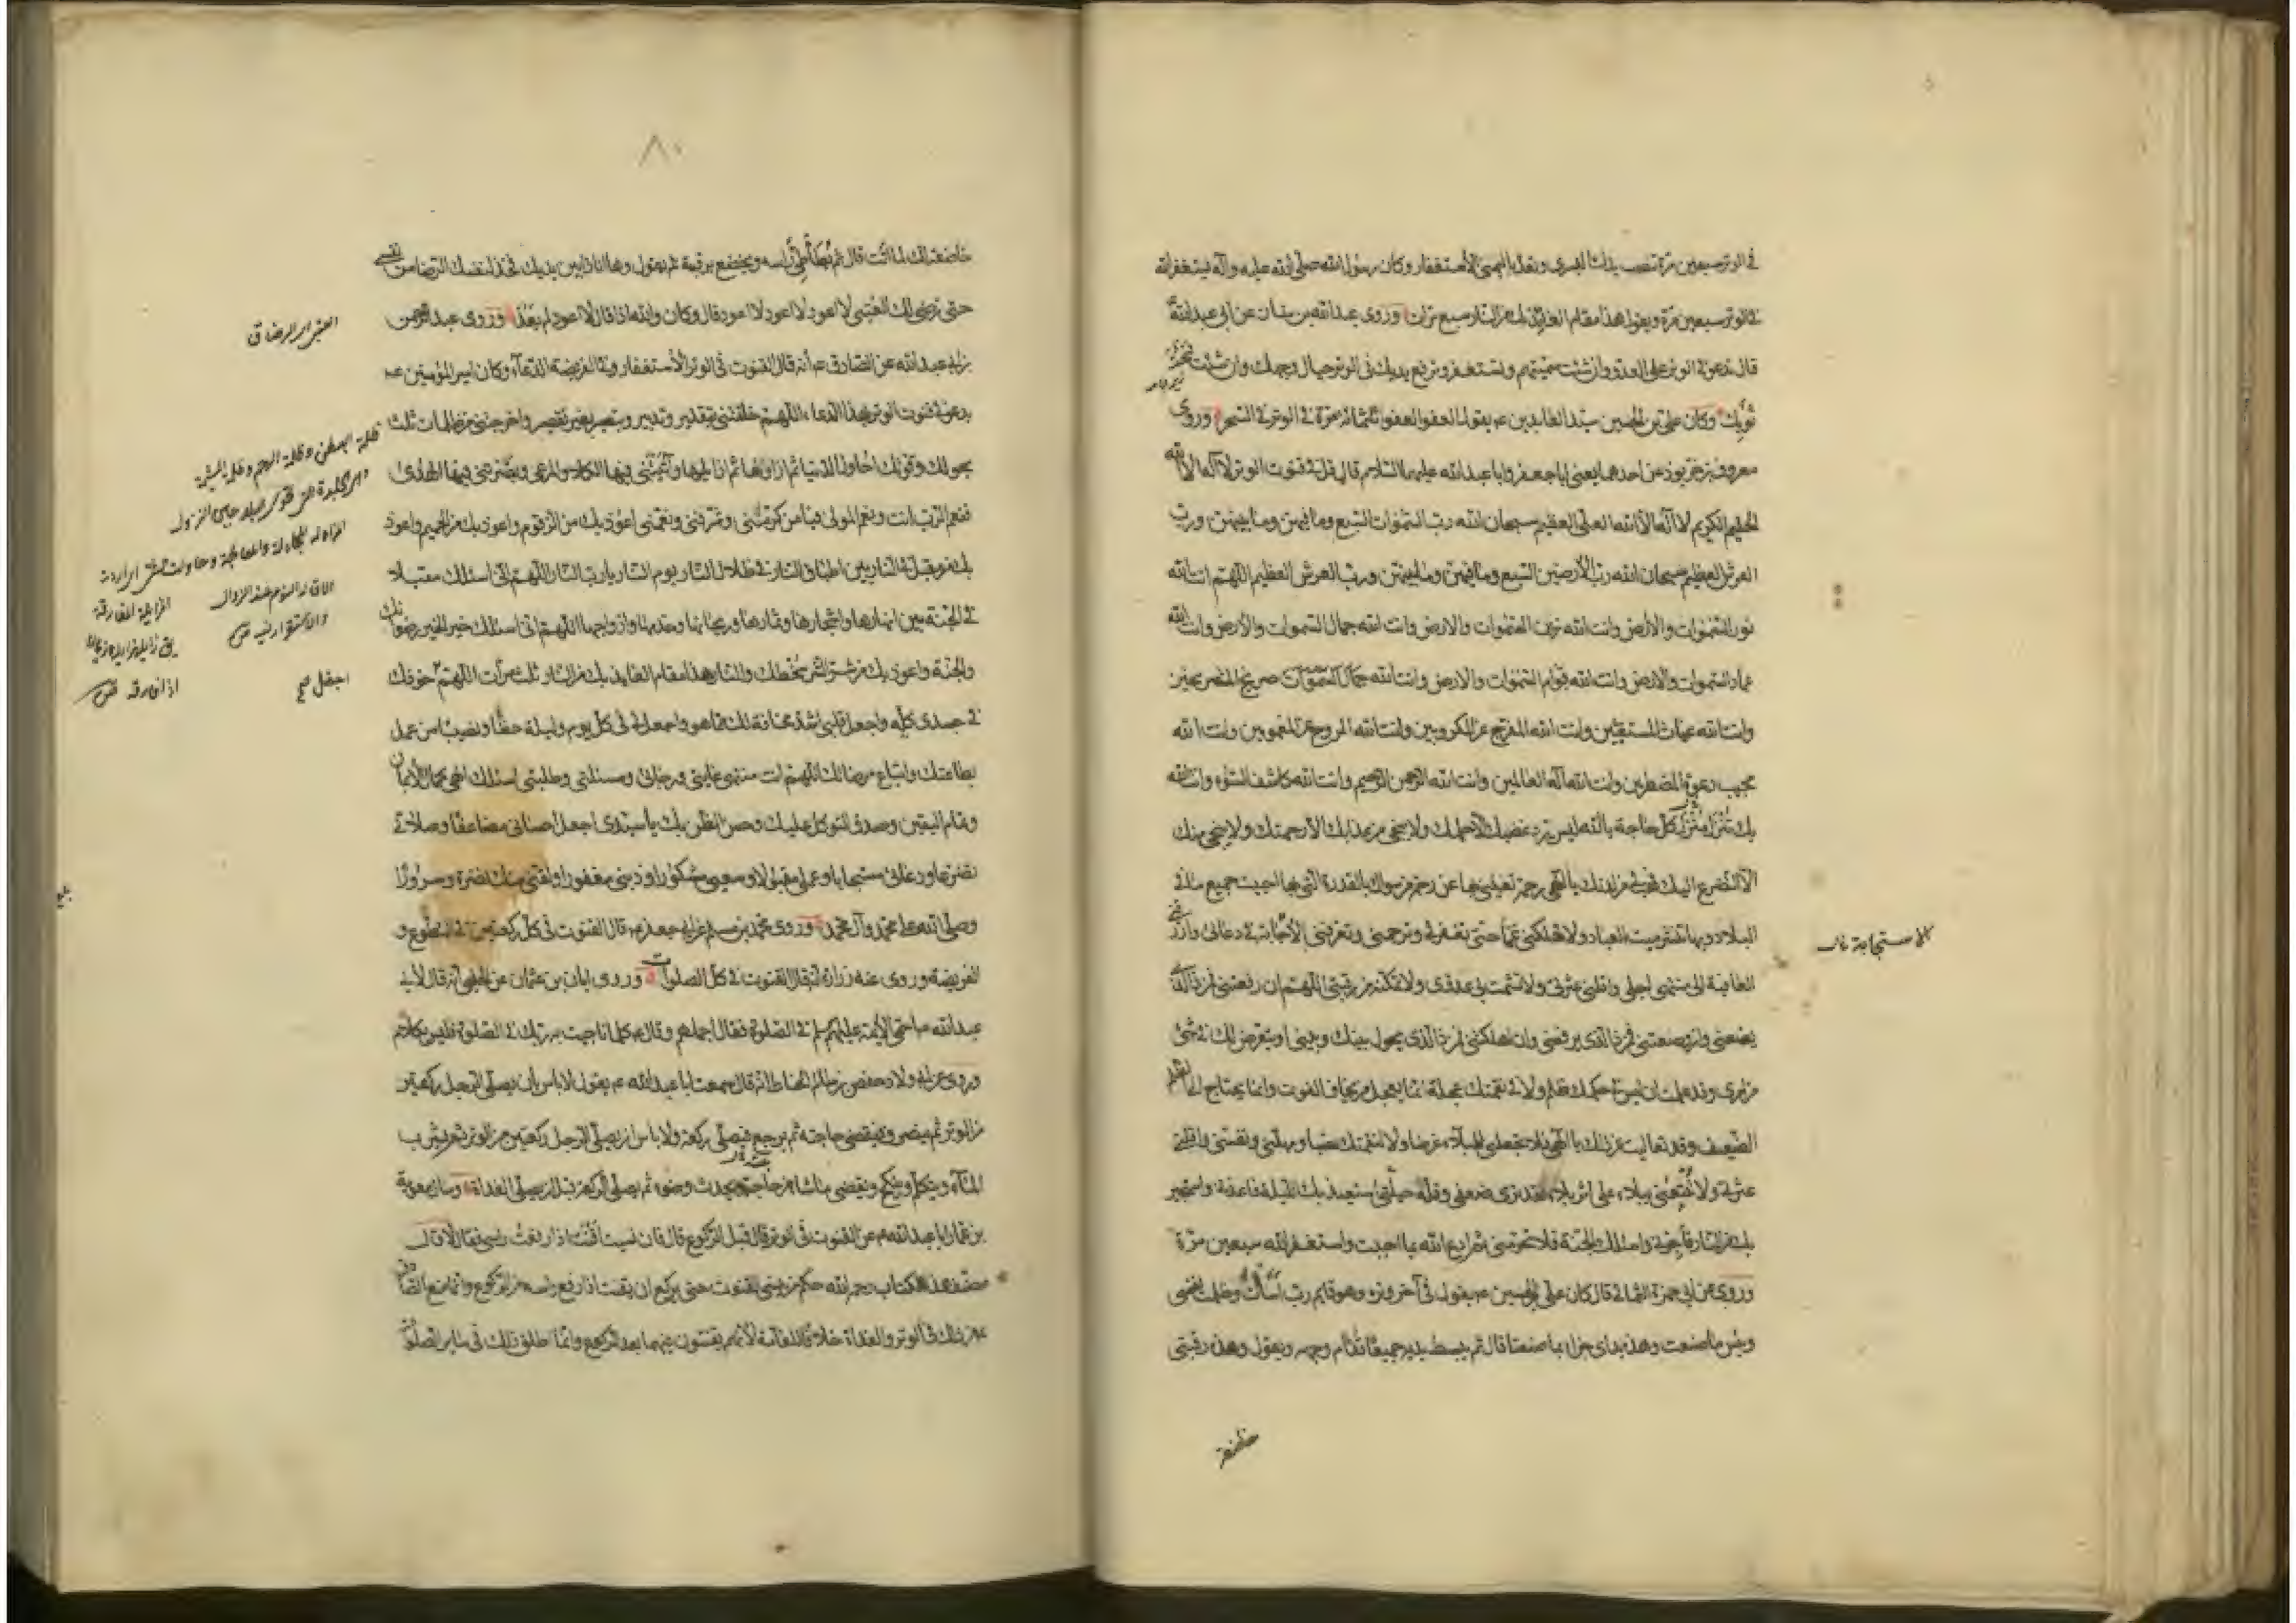 في الوتر سبعين مرة تنصب يدك اليسرى وتعد باليمنى الاستغفار وكان رسول الله صلى الله عليه وآله يستغفر الله
في الوتر سبعين مرة ويقول هذا مقام العائذ بك من النار سبع مرات وروى عبد الله بن سنان عن ابي عبد الله ع
قال تدعو في الوتر على العدو وان شئت سميتهم وتستغفر وترفع يديك في الوتر حيال وجهك وان شئت تحت
ثوبك وكان علي بن الحسين سيد العابدين ع يقول العفو العفو ثلثمائة مرة في الوتر في السحر وروى
معروف بن خربوذ عن احدهما يعني ابا جعفر وابا عبد الله عليهما السلام قال قل في قنوت الوتر لا آله الا الله
الحليم الكريم لا آله الا الله العلي العظيم سبحان الله رب السموات السبع وما فيهن وما بينهن ورب
العرش العظيم سبحان الله رب الأرضين السبع وما فيهن وما بينهن ورب العرش العظيم اللهم انت الله
نور السموات والأرض وانت الله زين السموات والارض وانت الله جمال السموات والأرض وانت الله
عماد السموات والارض وانت الله قوام السموات والارض وانت الله صريخ المستصرخين
وانت الله غياث المستغيثين وانت الله المفرج عن المكروبين وانت الله المروح عن المغمومين وانت الله
مجيب دعوة المضطرين وانت الله آله العالمين وانت الله الرحمن الرحيم وانت الله كاشف السوء وانت الله
بك تنزل كل حاجة يا الله ليس يرد غضبك الا حلمك ولا ينجي من عذابك الا رحمتك ولا ينجي منك
الا التضرع اليك فهب لي من لدنك يا الهي رحمة تغنيني بها عن رحمة من سواك بالقدرة التي بها احييت جميع ما في
البلاد وبها تنشر ميت العباد ولا تهلكني غما حتى تغفر لي وترحمني وتعرفني الاجابة في دعائي وارزقني
العافية الى منتهى اجلي واقلني عثرتي ولا تشمت بي عدوي ولا تمكنه من رقبتي اللهم ان رفعتني فمن ذا الذي
يضعني وان وضعتني فمن ذا الذي يرفعني وان اهلكتني فمن ذا الذي يحول بينك وبيني او يتعرض لك في شئ
من امري وقد علمت ان ليس في حكمك ظلم ولا في نقمتك عجلة انما يعجل من يخاف الفوت وانما يحتاج الى الظلم
الضعيف وقد تعاليت عن ذلك يا الهي فلا تجعلني للبلاء غرضا ولا لنقمتك نصبا ومهلني ونفسني واقلني
عثرتي ولا تتبعني ببلاء على اثر بلاء فقد ترى ضعفي وقلة حيلتي استعيذ بك الليلة فاعذني واستجير
بك من النار فأجرني واسئلك الجنة فلا تحرمني ثم ادع الله بما احببت واستغفر الله سبعين مرة
وروى عن ابي حمزة الثمالي قال كان علي بن الحسين ع يقول في آخر وتره وهو قايم رب اسأت وظلمت نفسي
وبئس ما صنعت وهذه يداي جزاء بما صنعتا قال ثم يبسط يديه جميعا قدام وجهه ويقول وهذه رقبتي
خاضعة
الاستجابة
٨٠
خاضعة لك لما اتت قال ثم يطأطئ رأسه ويخضع برقبته ثم يقول وها انا ذا بين يديك فخذ لنفسك الرضا من نفسي
حتى ترضى لك العتبى لا اعود لا اعود لا اعود قال وكان والله اذا قال لا اعود لم يعد وروى عبد الرحمن
بن ابي عبد الله عن الصادق ع انه قال القنوت في الوتر الاستغفار وفي الفريضة الدعاء وكان امير المؤمنين ع
يدعو في قنوت الوتر بهذا الدعاء اللهم خلقتني بتقدير وتدبير وتبصير بغير تقصير واخرجتني من ظلمات ثلث
بحولك وقوتك احاول الدنيا ثم ازاولها ثم ازايلها وآتيتني فيها الكلاء والمرعى وبصرتني فيها الهدى
فنعم الرب انت ونعم المولى فيا من كرمني وشرفني ونعمني اعوذ بك من الزقوم واعوذ بك من الحميم واعوذ
بك من مقيل في النار بين اطباق النار في ظلال النار يوم النار يا رب النار اللهم اني اسئلك مقيلا
في الجنة بين انهارها واشجارها وثمارها وريحانها وخدمها وازواجها اللهم اني اسئلك خير الخير رضوانك
والجنة واعوذ بك من شر الشر سخطك والنار هذا مقام العايذ بك من النار ثلث مرات اللهم اجعل خوفك
في جسدي كله واجعل قلبي اشد مخافة لك مما هو واجعل لي في كل يوم وليلة حظا ونصيبا من عمل
بطاعتك واتباع مرضاتك اللهم انت منتهى غايتي ورجائي ومسئلتي وطلبتي اسئلك الهي كمال الايمان
وتمام اليقين وصدق التوكل عليك وحسن الظن بك يا سيدي اجعل احساني مضاعفا وصلاتي
تضرعا ودعائي مستجابا وعملي مقبولا وسعيي مشكورا وذنبي مغفورا ولقني منك نضرة وسرورا
وصلى الله على محمد وآل محمد وروى محمد بن مسلم عن ابي جعفر ع قال القنوت في كل ركعتين في التطوع و
الفريضة وروى عنه زرارة انه قال القنوت في كل الصلوات وروى ابان بن عثمان عن الحلبي انه قال لابي
عبد الله ع اسمي الائمة عليهم السلم في الصلوة فقال اجملهم وقال ع كلما ناجيت به ربك في الصلوة فليس بكلام
وروى عن ابي ولاد حفص بن سالم الحناط انه قال سمعت ابا عبد الله ع يقول لا باس بان يصلي الرجل ركعتين
من الوتر ثم ينصرف فيقضي حاجته ثم يرجع فيصلي ركعة ولا باس ان يصلي الرجل ركعتين من الوتر ثم يشرب
الماء ويتكلم وينكح ويقضي ما شاء من حاجته ويحدث وضوء ثم يصلي الركعة قبل ان يصلي الغداة وسأل معوية
بن عمار ابا عبد الله ع عن القنوت في الوتر قال قبل الركوع قال فان نسيت أقنت اذا رفعت رأسي فقال لا قال
مصنف هذا الكتاب رحمه الله حكم من ينسى القنوت حتى يركع ان يقنت اذا رفع راسه من الركوع وانما منع الصادق
ع من ذلك في الوتر والغداة خلافا للعامة لانهم يقنتون فيهما بعد الركوع وانما اطلق ذلك في ساير الصلوات
ظلمة البطن وظلمة الرحم وظلمة المشيمة
اجعل صح